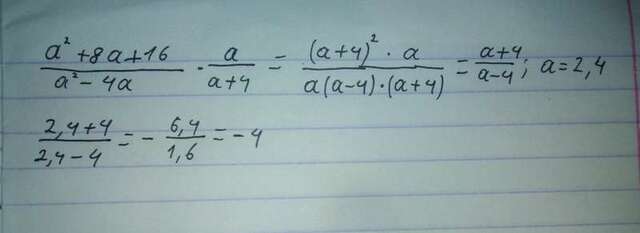 (a² + 8a + 16)/(a² - 4a) · a/(a+4) = ((a+4)² · a)/(a(a-4)·(a+4)) = (a+4)/(a-4); a = 2,4
(2,4+4)/(2,4-4) = - 6,4/1,6 = -4